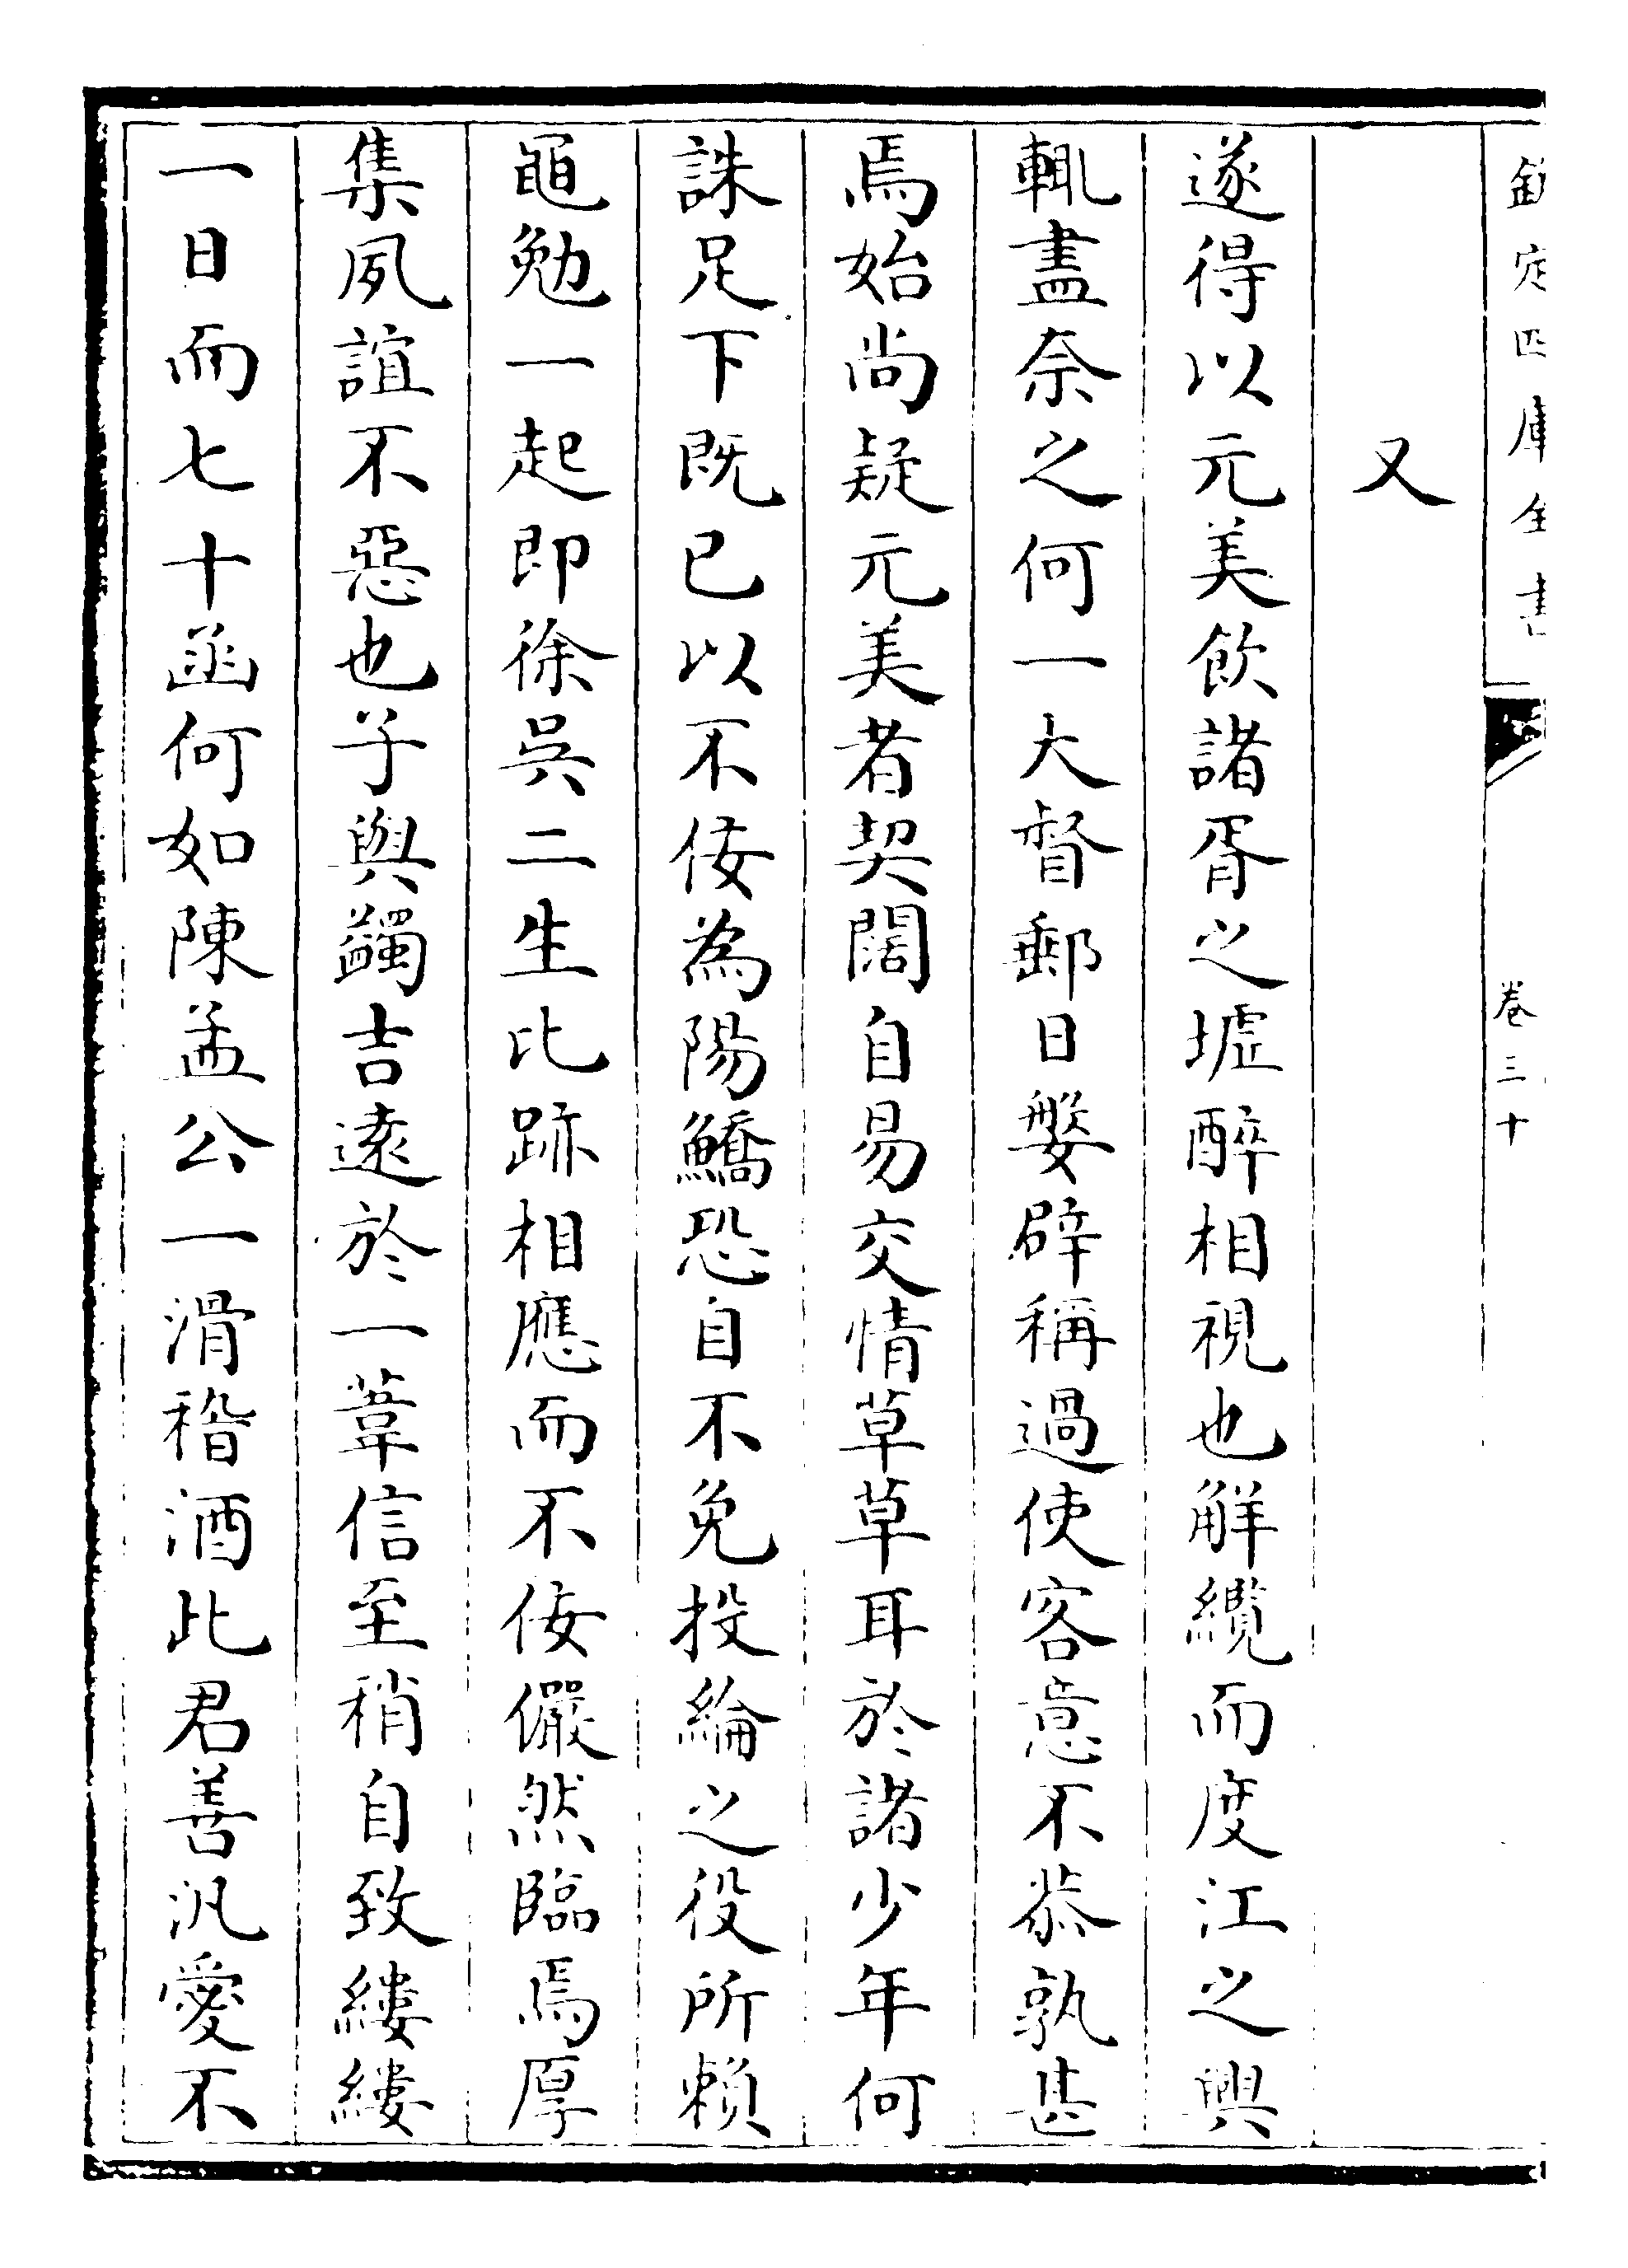 欽定四庫全書 卷三十
又
遂得以元美飲諸胥之墟醉相視也解纜而度江之興
輒盡奈之何一大督郵日媻辟稱過使客意不恭孰甚
焉始尚疑元美者契闊自易交情草草耳於諸少年何
誅足下既已以不佞為陽鱎恐自不免投綸之役所賴
黽勉一起即徐吳二生比跡相應而不佞儼然臨焉厚
集夙誼不惡也子與蠲吉遠於一葦信至稍自致縷縷
一日而七十函何如陳孟公一滑稽酒此君善汎愛不